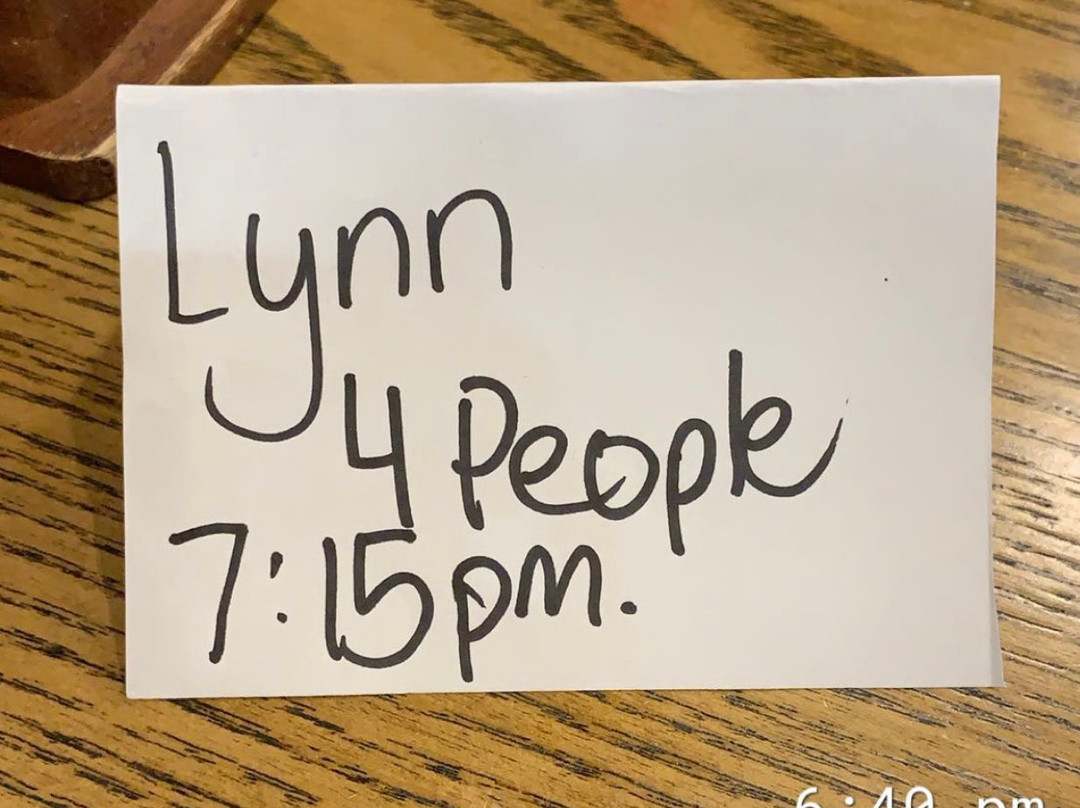 Lynn
4 People
7:15pm.
6:40 pm